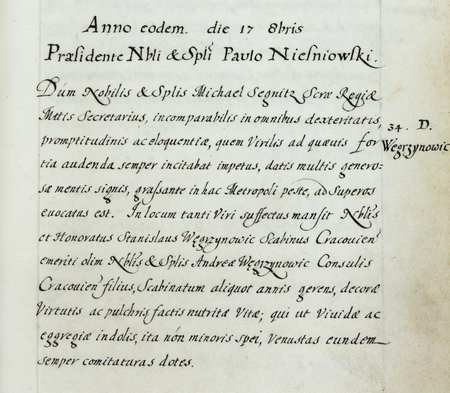 Anno eodem. die 17 8bris
Præsidente Nbli & Spli Paulo Niesniowski.
Dum Nobilis & Splis Michael Segnitz Scræ Regiæ
Mttis Secretarius, incomparabilis in omnibus dexteritatis,
promptitudinis ac eloquentiæ, quem Virilis ad quævis for
34. D. Węgrzynowic
tia audenda semper incitabat impetus, datis multis genero:
sæ mentis signis, grassante in hac Metropoli peste, ad Superos
evocatus est. In locum tanti Viri suffectus mansit Nblis
et Honoratus Stanislaus Węgrzynowic Scabinus Cracovien̄
emeriti olim Nblis & Splis Andreæ Węgrzynowic Consulis
Cracovien̄ filius, Scabinatum aliquot annis gerens, decoræ
Virtutis ac pulchris factis nutritæ Vitæ; qui ut Vividæ ac
eggregiæ indolis, ita nón minoris spei, Venustas eundem
semper comitaturas dotes.